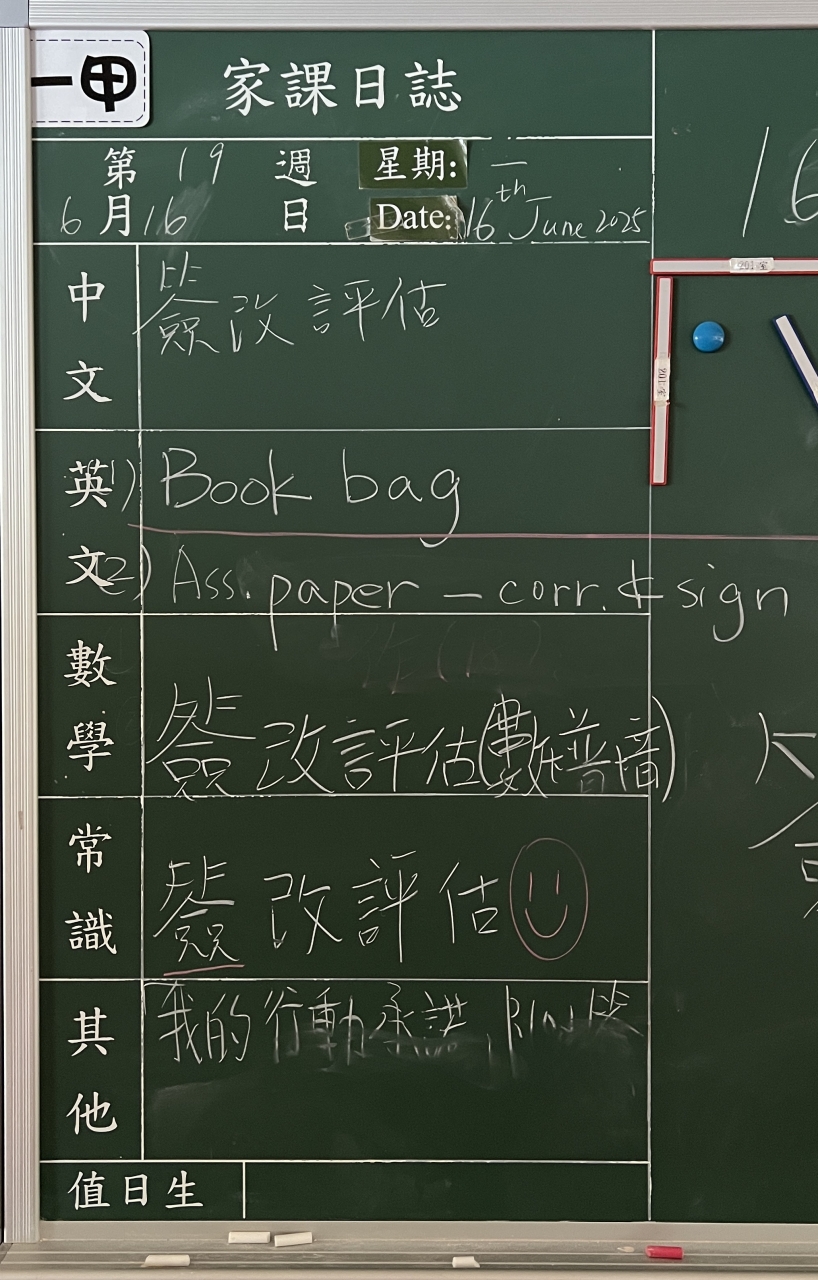 一甲
家課日誌
第 19 週 星期: 一
6月16日 Date: 16th June 2025
16
201室
201室
中文 簽改評估
英文 1) Book bag
2) Ass. paper – corr. & sign
數學 簽改評估(數,普,音)
常識 簽改評估
其他 我的行動承諾,
值日生